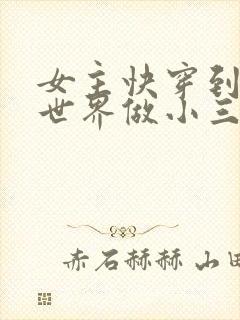 女主快穿到
世界做小三
赤石赫赫 山田